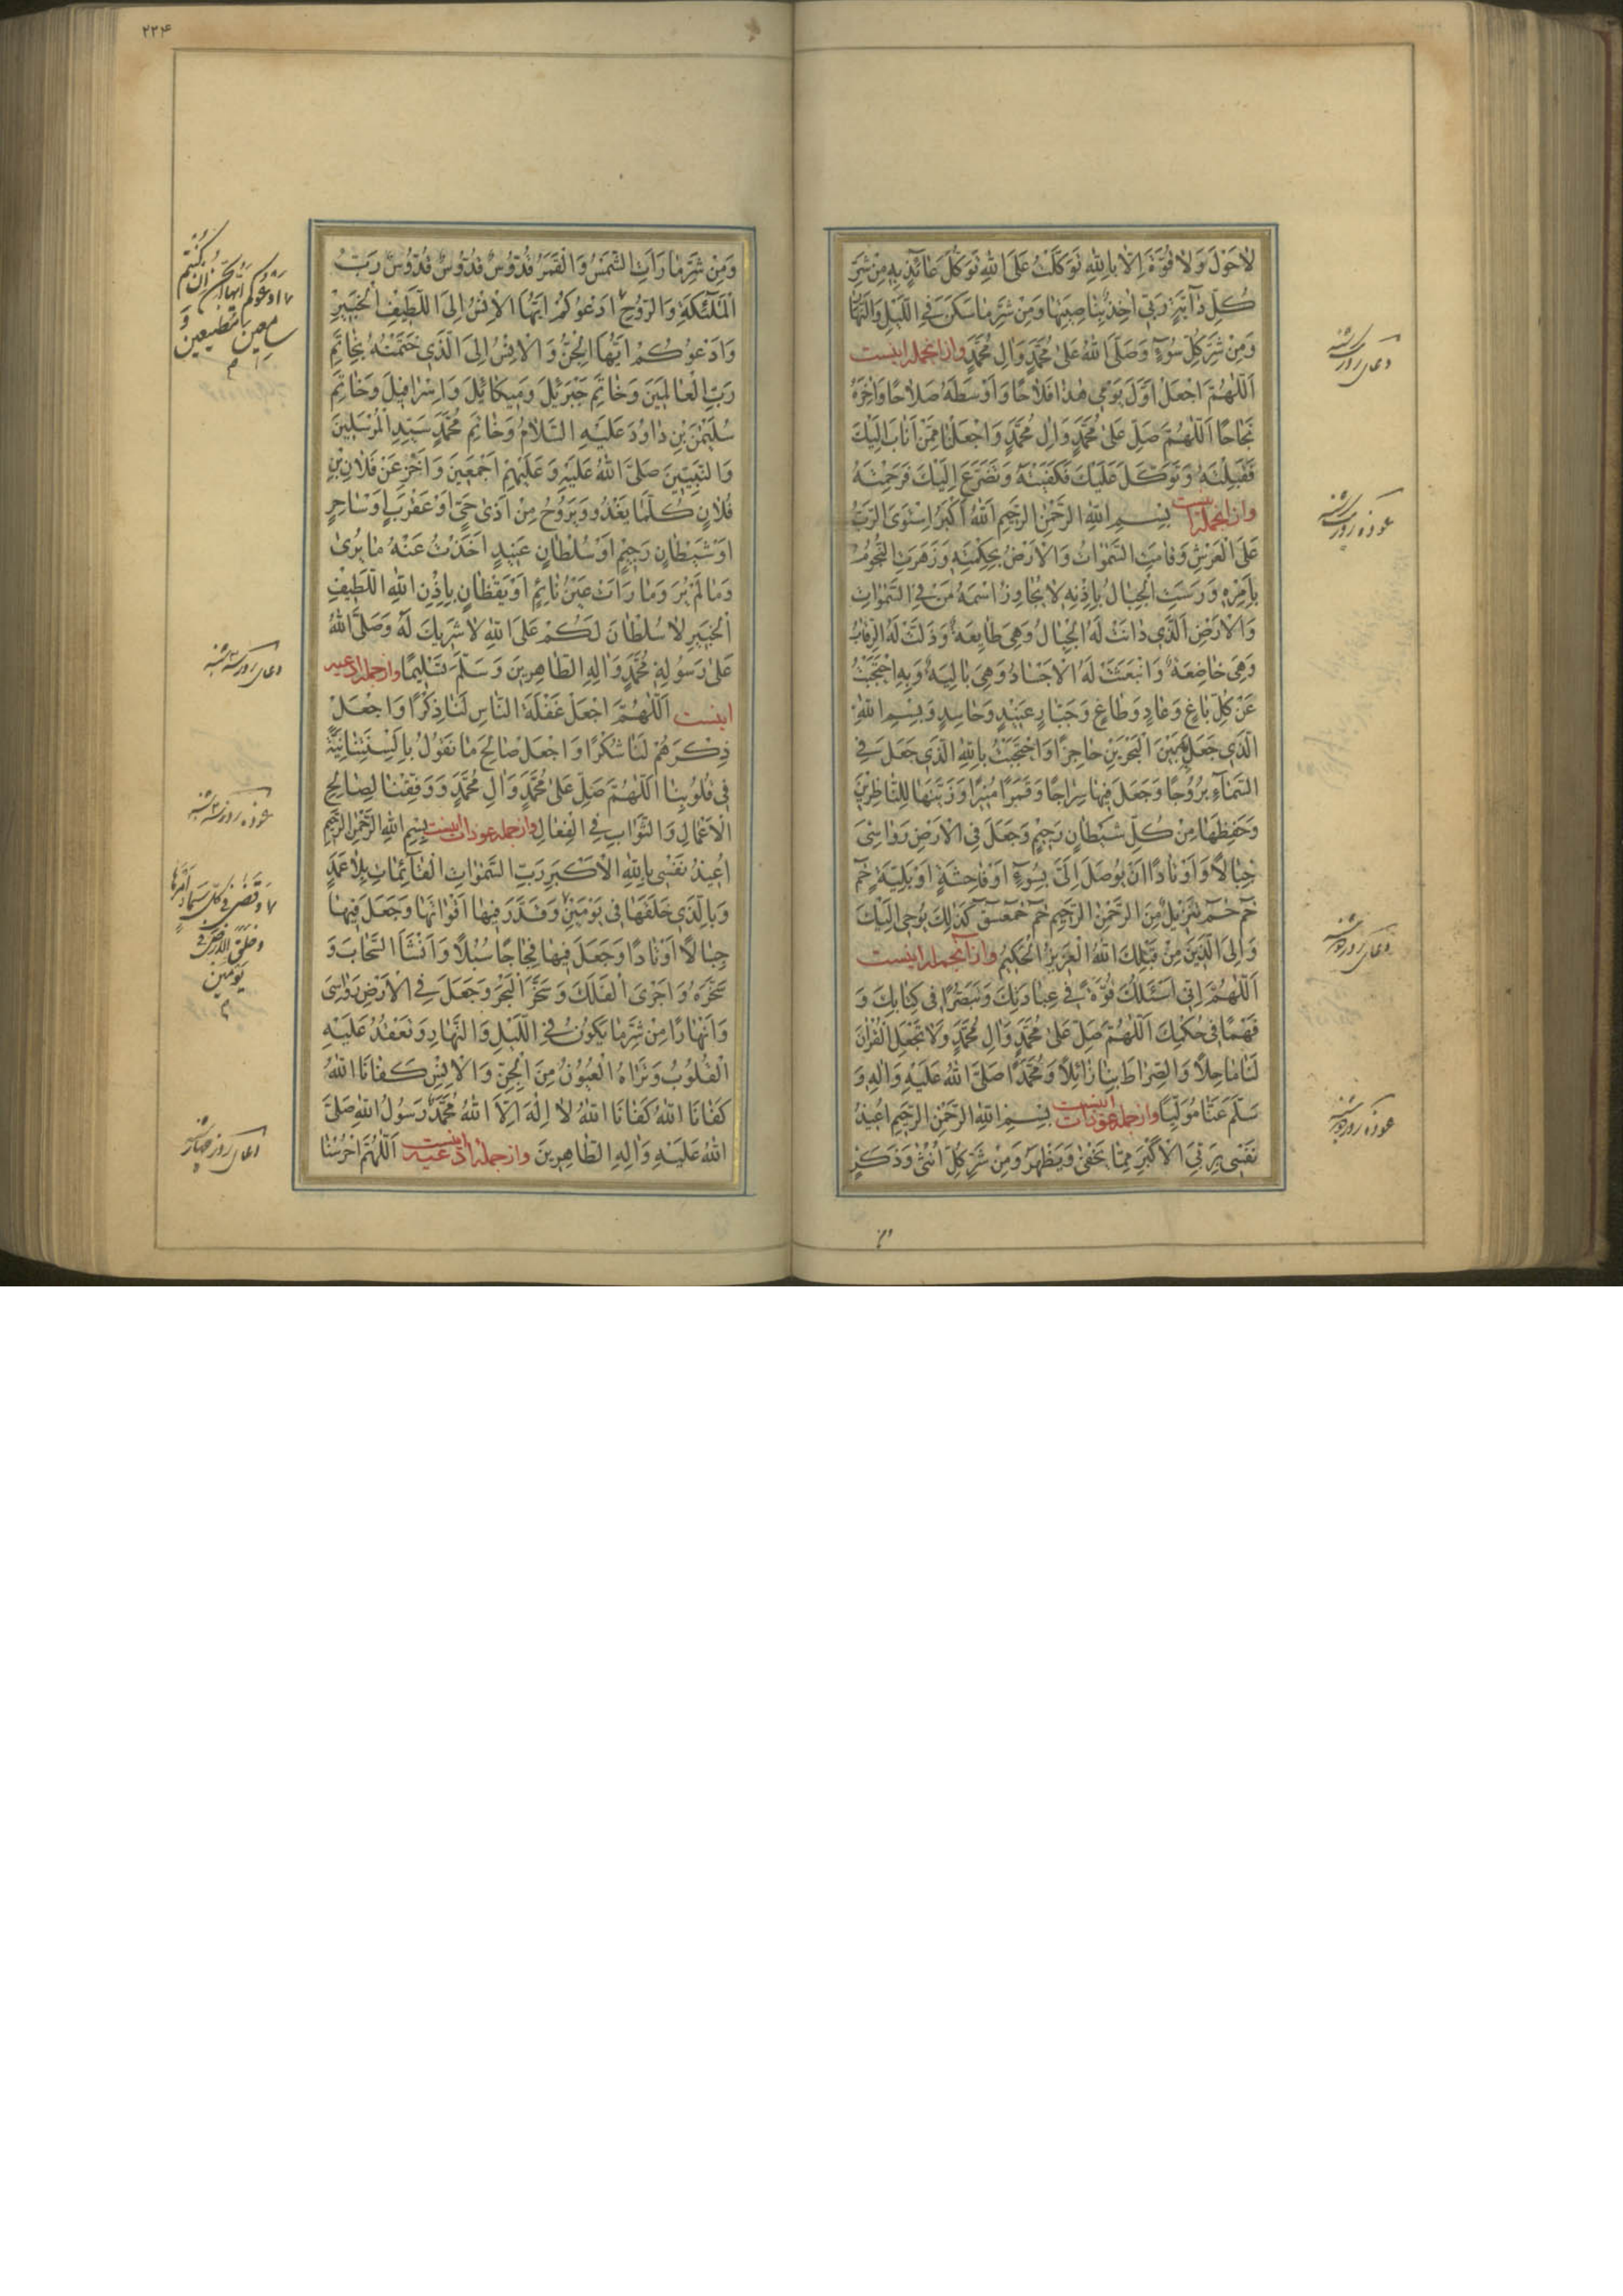 لاٰ حَوْلَ وَلاٰ قُوَّةَ اِلاّٰ بِاللّٰهِ تَوَكَّلْتُ عَلَى اللّٰهِ تَوَكُّلَ عٰائِذٍ بِهِ مِنْ شَرِّ
كُلِّ دٰابَّةٍ رَبّى اٰخِذٌ بِنٰاصِيَتِهٰا وَمِنْ شَرِّ مٰا سَكَنَ فِى اللَّيْلِ وَالنَّهٰارِ
وَمِنْ شَرِّ كُلِّ سُوءٍ وَصَلَّى اللّٰهُ عَلىٰ مُحَمَّدٍ وَاٰلِ مُحَمَّدٍ وازانجمله اینست
اَللّٰهُمَّ اجْعَلْ اَوَّلَ يَوْمى هٰذٰا فَلاٰحًا وَاَوْسَطَهُ صَلاٰحًا وَاٰخِرَهُ
نَجٰاحًا اَللّٰهُمَّ صَلِّ عَلىٰ مُحَمَّدٍ وَاٰلِ مُحَمَّدٍ وَاجْعَلْنٰا مِمَّنْ اَنٰابَ اِلَيْكَ
فَقَبِلْتَهُ وَتَوَكَّلَ عَلَيْكَ فَكَفَيْتَهُ وَتَضَرَّعَ اِلَيْكَ فَرَحِمْتَهُ
وازانجمله اینست بِسْمِ اللّٰهِ الرَّحْمٰنِ الرَّحيمِ اَللّٰهُ اَكْبَرُ اِسْتَوَى الرَّبُّ
عَلَى الْعَرْشِ وَقٰامَتِ السَّمٰوٰاتُ وَالْاَرْضُ بِحِكْمَتِهِ وَزَهَرَتِ النُّجُومُ
بِاَمْرِهِ وَرَسَتِ الْجِبٰالُ بِاِذْنِهِ لاٰ يُجٰاوِزُ اسْمَهُ مَنْ فِى السَّمٰوٰاتِ
وَالْاَرْضِ اَلَّذى دٰانَتْ لَهُ الْجِبٰالُ وَهِىَ طٰايِعَةٌ وَذَلَّتْ لَهُ الرِّقٰابُ
وَهِىَ خٰاضِعَةٌ وَانْبَعَثَتْ لَهُ الْاَجْسٰادُ وَهِىَ بٰالِيَةٌ وَبِهِ احْتَجَبْتُ
عَنْ كُلِّ بٰاغٍ وَعٰادٍ وَطٰاغٍ وَجَبّٰارٍ عَنيدٍ وَحٰاسِدٍ وَبِسْمِ اللّٰهِ
الَّذى جَعَلَ بَيْنَ الْبَحْرَيْنِ حٰاجِزًا وَاحْتَجَبْتُ بِاللّٰهِ الَّذى جَعَلَ فِى
السَّمٰاءِ بُرُوجًا وَجَعَلَ فيهٰا سِرٰاجًا وَقَمَرًا مُنيرًا وَزَيَّنَهٰا لِلنّٰاظِرينَ
وَحَفِظَهٰا مِنْ كُلِّ شَيْطٰانٍ رَجيمٍ وَجَعَلَ فِى الْاَرْضِ رَوٰاسِىَ
جِبٰالاً وَاَوْتٰادًا اَنْ يُوصَلَ اِلَىَّ بِسُوءٍ اَوْ فٰاحِشَةٍ اَوْ بَلِيَّةٍ حٰمٓ
حٰمٓ حٰمٓ تَنْزيلٌ مِنَ الرَّحْمٰنِ الرَّحيمِ حٰمٓ حٰمٓعٓسٓقٓ كَذٰلِكَ يُوحى اِلَيْكَ
وَاِلَى الَّذينَ مِنْ قَبْلِكَ اللّٰهُ الْعَزيزُ الْحَكيمُ وازآنجمله اینست
اَللّٰهُمَّ اِنّى اَسْئَلُكَ قُوَّةً فى عِبٰادَتِكَ وَتَبَصُّرًا فى كِتٰابِكَ وَ
فَهْمًا فى حُكْمِكَ اَللّٰهُمَّ صَلِّ عَلىٰ مُحَمَّدٍ وَاٰلِ مُحَمَّدٍ وَلاٰ تَجْعَلِ الْقُرْاٰنَ
لَنٰا مٰاحِلاً وَالصِّرٰاطَ بِنٰا زٰائِلاً وَمُحَمَّدًا صَلَّى اللّٰهُ عَلَيْهِ وَاٰلِهِ وَ
سَلَّمَ عَنّٰا مُوَلِّيًا وازجمله عوذات اینست بِسْمِ اللّٰهِ الرَّحْمٰنِ الرَّحيمِ اُعيذُ
نَفْسى بِرَبِّىَ الْاَكْبَرِ مِمّٰا يَخْفىٰ وَيَظْهَرُ وَمِنْ شَرِّ كُلِّ اُنْثىٰ وَذَكَرٍ
دعای روز یکشنبه
عوذه روز یکشنبه
دعای روز دوشنبه
عوذه روز دوشنبه
۲۲۴
وَمِنْ شَرِّ مٰا رَاَتِ الشَّمْسُ وَالْقَمَرُ قُدُّوسٌ قُدُّوسٌ قُدُّوسٌ رَبُّ
الْمَلٰٓئِكَةِ وَالرُّوحِ اَدْعُوكُمْ اَيُّهَا الْاِنْسُ اِلَى اللَّطيفِ الْخَبيرِ
وَاَدْعُوكُمْ اَيُّهَا الْجِنُّ وَالْاِنْسُ اِلَى الَّذى خَتَمْتُهُ بِخٰاتَمِ
رَبِّ الْعٰالَمينَ وَخٰاتَمِ جَبْرَئيلَ وَميكٰائيلَ وَاِسْرٰافيلَ وَخٰاتَمِ
سُلَيْمٰنَ بْنِ دٰاوُدَ عَلَيْهِ السَّلاٰمُ وَخٰاتَمِ مُحَمَّدٍ سَيِّدِ الْمُرْسَلينَ
وَالنَّبِيّينَ صَلَّى اللّٰهُ عَلَيْهِ وَعَلَيْهِمْ اَجْمَعينَ وَاَخِّرْ عَنْ فُلاٰنِ بْنِ
فُلاٰنٍ كُلَّمٰا يَغْدُو وَيَرُوحُ مِنْ اَذىٰ حَىٍّ اَوْ عَقْرَبٍ اَوْ سٰاحِرٍ
اَوْ شَيْطٰانٍ رَجيمٍ اَوْ سُلْطٰانٍ عَنيدٍ اَخَذْتُ عَنْهُ مٰا يُرىٰ
وَمٰا لَمْ يُرَ وَمٰا رَاَتْ عَيْنُ نٰائِمٍ اَوْ يَقْظٰانٍ بِاِذْنِ اللّٰهِ اللَّطيفِ
الْخَبيرِ لاٰ سُلْطٰانَ لَكُمْ عَلَى اللّٰهِ لاٰ شَريكَ لَهُ وَصَلَّى اللّٰهُ
عَلىٰ رَسُولِهِ مُحَمَّدٍ وَاٰلِهِ الطّٰاهِرينَ وَسَلَّمَ تَسْليمًا وازجمله ادعیه
اینست اَللّٰهُمَّ اجْعَلْ غَفْلَةَ النّٰاسِ لَنٰا ذِكْرًا وَاجْعَلْ
ذِكْرَهُمْ لَنٰا شُكْرًا وَاجْعَلْ صٰالِحَ مٰا نَقُولُ بِاَلْسِنَتِنٰا نِيَّةً
فى قُلُوبِنٰا اَللّٰهُمَّ صَلِّ عَلىٰ مُحَمَّدٍ وَاٰلِ مُحَمَّدٍ وَوَفِّقْنٰا لِصٰالِحِ
الْاَعْمٰالِ وَالثَّوٰابِ فِى الْفِعٰالِ وازجمله عوذات اینست بِسْمِ اللّٰهِ الرَّحْمٰنِ الرَّحيمِ
اُعيذُ نَفْسى بِاللّٰهِ الْاَكْبَرِ رَبِّ السَّمٰوٰاتِ الْقٰآئِمٰاتِ بِلاٰ عَمَدٍ
وَبِالَّذى خَلَقَهٰا فى يَوْمَيْنِ وَقَدَّرَ فيهٰا اَقْوٰاتَهٰا وَجَعَلَ فيهٰا
جِبٰالاً اَوْتٰادًا وَجَعَلَ فيهٰا فِجٰاجًا سُبُلاً وَاَنْشَاَ السَّحٰابَ وَ
سَخَّرَهُ وَاَجْرَى الْفُلْكَ وَسَخَّرَ الْبَحْرَ وَجَعَلَ فِى الْاَرْضِ رَوٰاسِىَ
وَاَنْهٰارًا مِنْ شَرِّ مٰا يَكُونُ فِى اللَّيْلِ وَالنَّهٰارِ وَتَعْقِدُ عَلَيْهِ
الْقُلُوبُ وَتَرٰاهُ الْعُيُونُ مِنَ الْجِنِّ وَالْاِنْسِ كَفٰانَا اللّٰهُ
كَفٰانَا اللّٰهُ كَفٰانَا اللّٰهُ لاٰ اِلٰهَ اِلاَّ اللّٰهُ مُحَمَّدٌ رَسُولُ اللّٰهِ صَلَّى
اللّٰهُ عَلَيْهِ وَاٰلِهِ الطّٰاهِرينَ وازجمله ادعیه اینست اَللّٰهُمَّ احْرُسْنٰا
وادعوكم ايها الجن ان كنتم
سامعين مطيعين و
دعای روز سه شنبه
عوذه روز سه شنبه
وقضى فى كل سماء امرها
وخلق الارض فى
يومين
دعای روز چهارشنبه